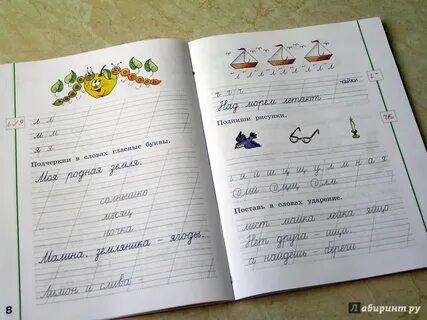 л л
м м
я я
Подчеркни в словах гласные буквы.
Моя родная земля.
солнышко
месяц
ночка
Малина, земляника – ягоды.
Лимон и слива
8
чайки.
Над морем летают
Подпиши рисунки.
и й ш щ ц л м н а я
Поставь в словах ударение.
лист майка лейка яйцо
Нет друга – ищи,
а найдёшь – береги.
Лабиринт.ру